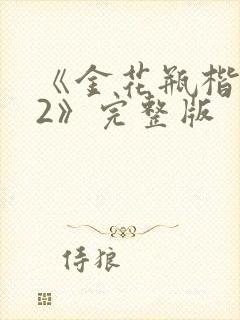 《金花瓶楷
2》完整版
侍狼